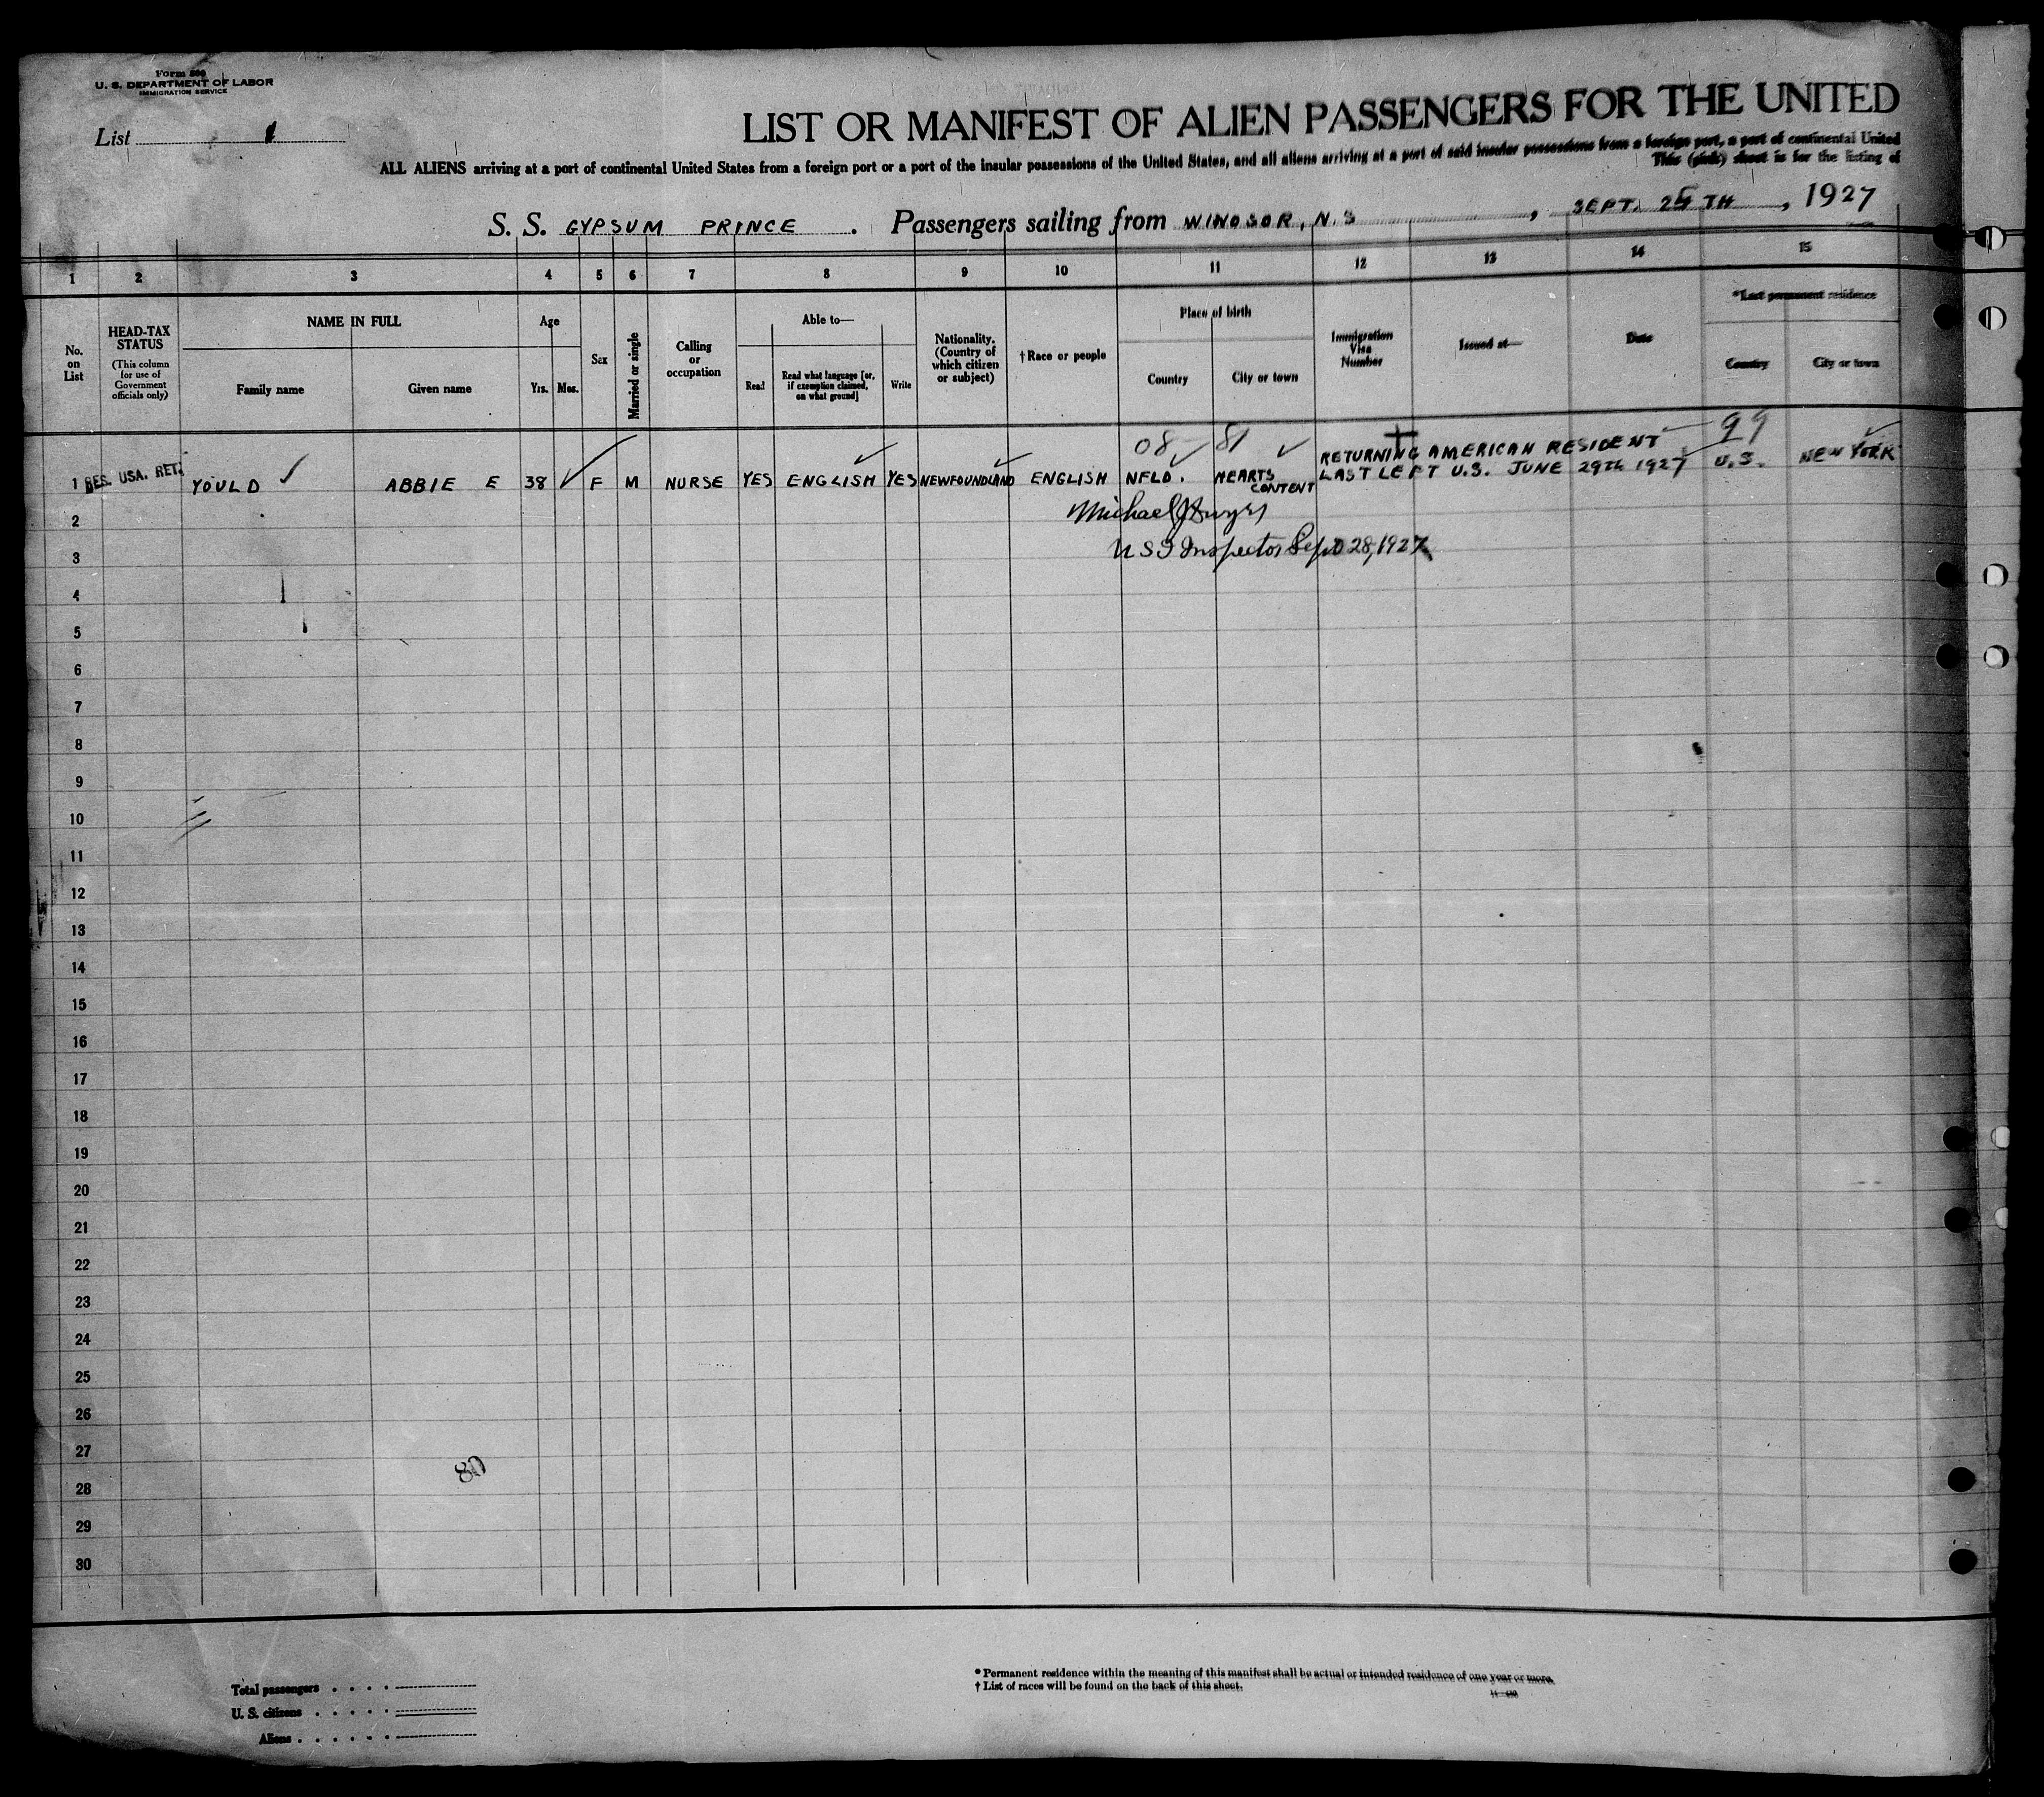 Form 500
U. S. DEPARTMENT OF LABOR
IMMIGRATION SERVICE
List 1
LIST OR MANIFEST OF ALIEN PASSENGERS FOR THE UNITED
ALL ALIENS arriving at a port of continental United States from a foreign port or a port of the insular possessions of the United States, and all aliens arriving at a port of said insular possessions from a foreign port, a port of continental United
This (pink) sheet is for the listing of
S. S. GYPSUM PRINCE . Passengers sailing from WINDSOR, N.S , SEPT. TH , 1927
1 2 3 4 5 6 7 8 9 10 11 12 13 14 15
No. on List
HEAD-TAX STATUS
(This column for use of Government officials only)
NAME IN FULL
Family name
Given name
Age
Yrs. Mos.
Sex
Married or single
Calling or occupation
Able to—
Read
Read what language [or, if exemption claimed, on what ground]
Write
Nationality. (Country of which citizen or subject)
† Race or people
Place of birth
Country
City or town
Immigration Visa Number
Issued at—
Date
*Last permanent residence
Country
City or town
08 81 99
1 RES. USA. RET. YOULD ABBIE E 38 F M NURSE YES ENGLISH YES NEWFOUNDLAND ENGLISH NFLD. HEARTS CONTENT RETURNING AMERICAN RESIDENT LAST LEFT U.S. JUNE 29TH 1927 U.S. NEW YORK
2 Michael J Dwyer
3 U S I Inspector Sept 28, 1927
4
5
6
7
8
9
10
11
12
13
14
15
16
17
18
19
20
21
22
23
24
25
26
27
80
28
29
30
Total passengers
U. S. citizens
Aliens
* Permanent residence within the meaning of this manifest shall be actual or intended residence of one year or more.
† List of races will be found on the back of this sheet.